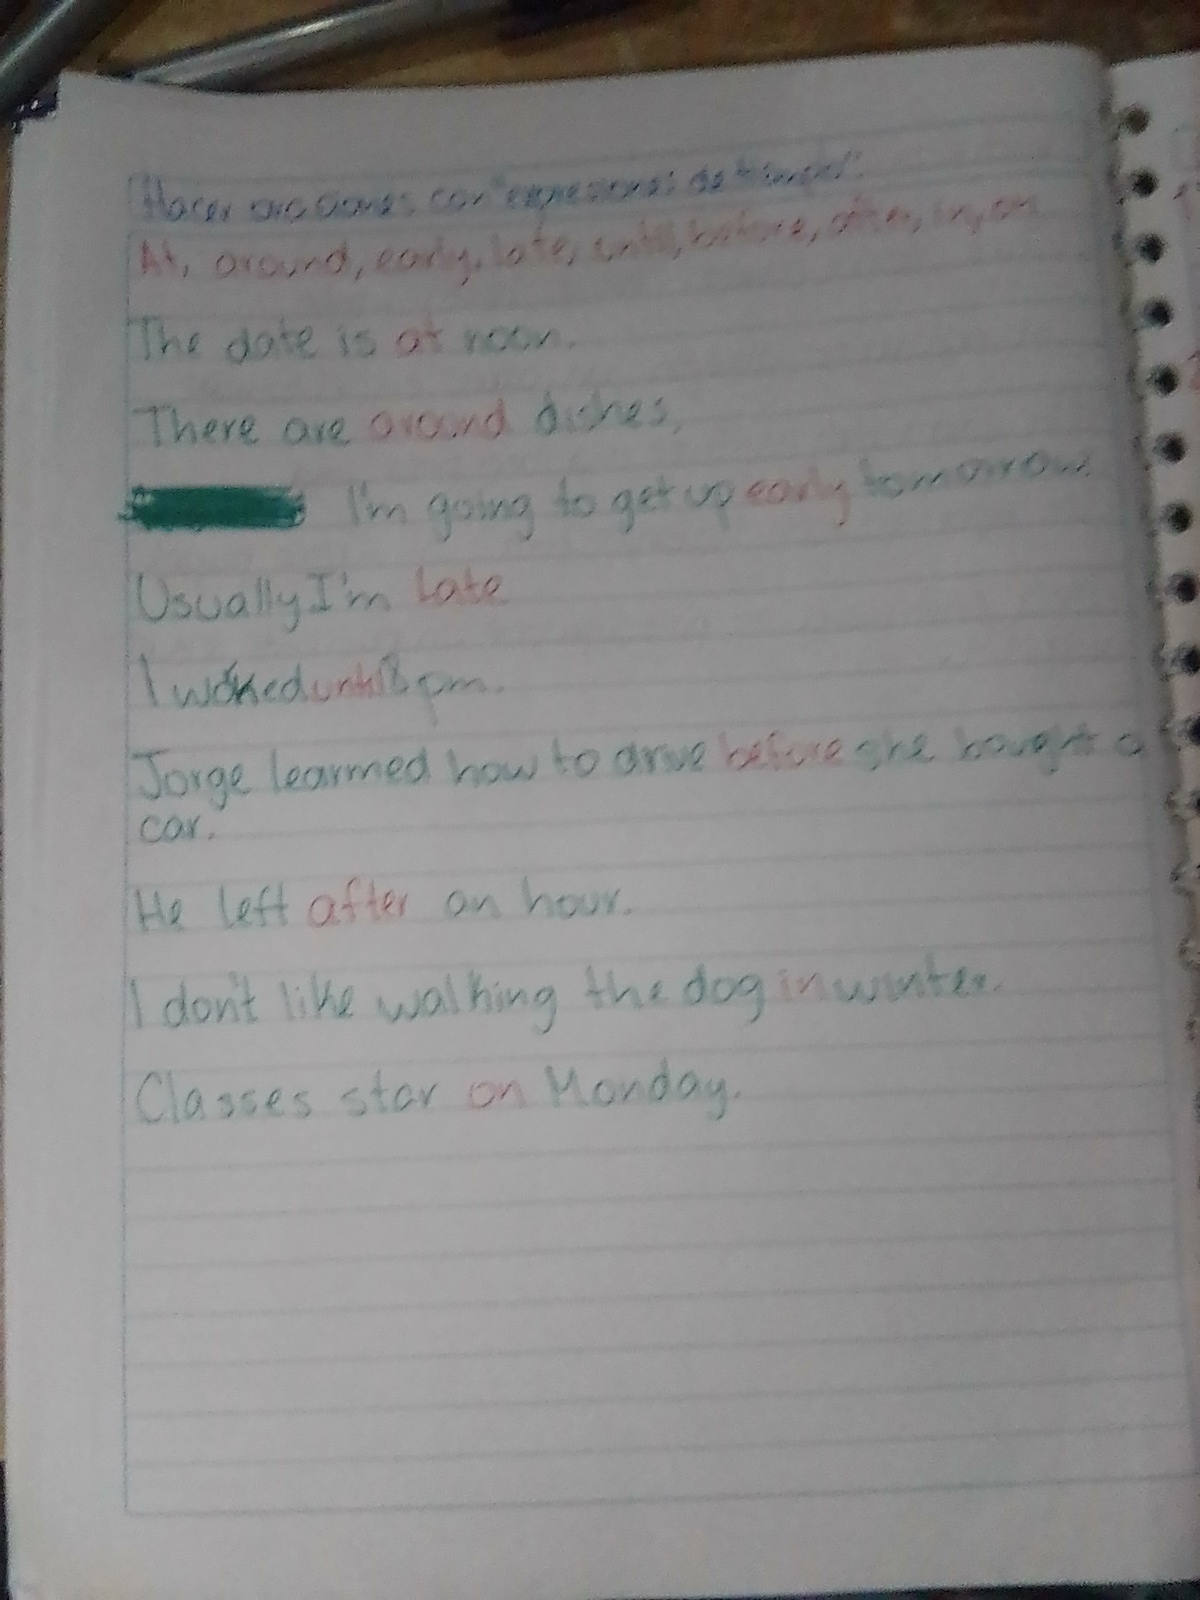 Hacer oraciones con "expresiones de tiempo".
At, around, early, late, until, before, after, in, on
The date is at noon.
There are around dishes.
I'm going to get up early tomorrow.
Usually I'm late
I worked until 8 pm.
Jorge learmed how to drive before she bought a
car.
He left after an hour.
I don't like walking the dog in winter.
Classes star on Monday.